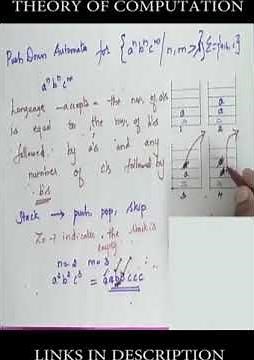 THEORY OF COMPUTATION
Push Down Automata for {aⁿbⁿcᵐ / n, m ≥
aⁿbⁿcᵐ
Language accepts the num. of a's
is equal to the num of b's
followed by a's and any
number of c's followed by
b's
Stack → push, pop, skip
Z₀ → indicates the stack is
empty
n = 2 m = 3
a²b²c³ = aabbccc
a
a
a
1
2
3
4
LINKS IN DESCRIPTION